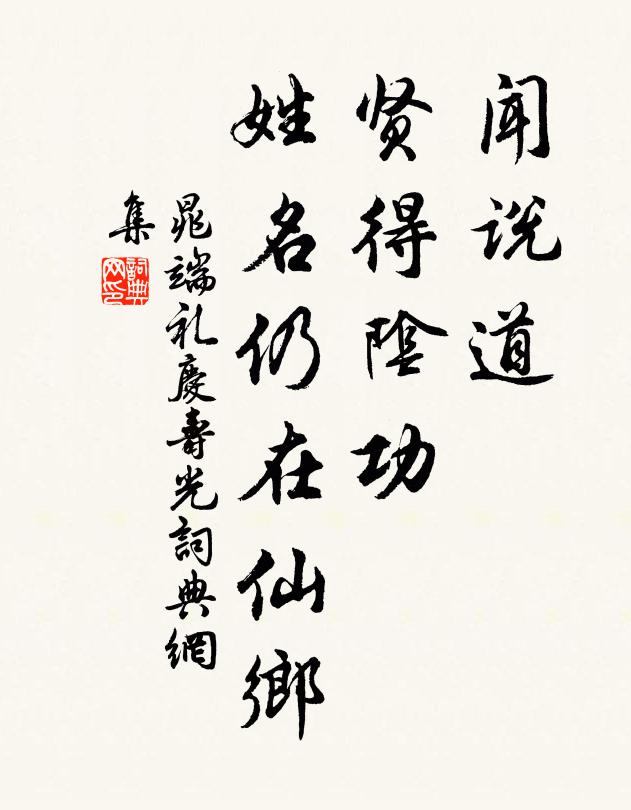 闻说道
贤得陰功
姓名仍在仙鄉
晁端礼慶壽光詞典網
集
詞典
网印